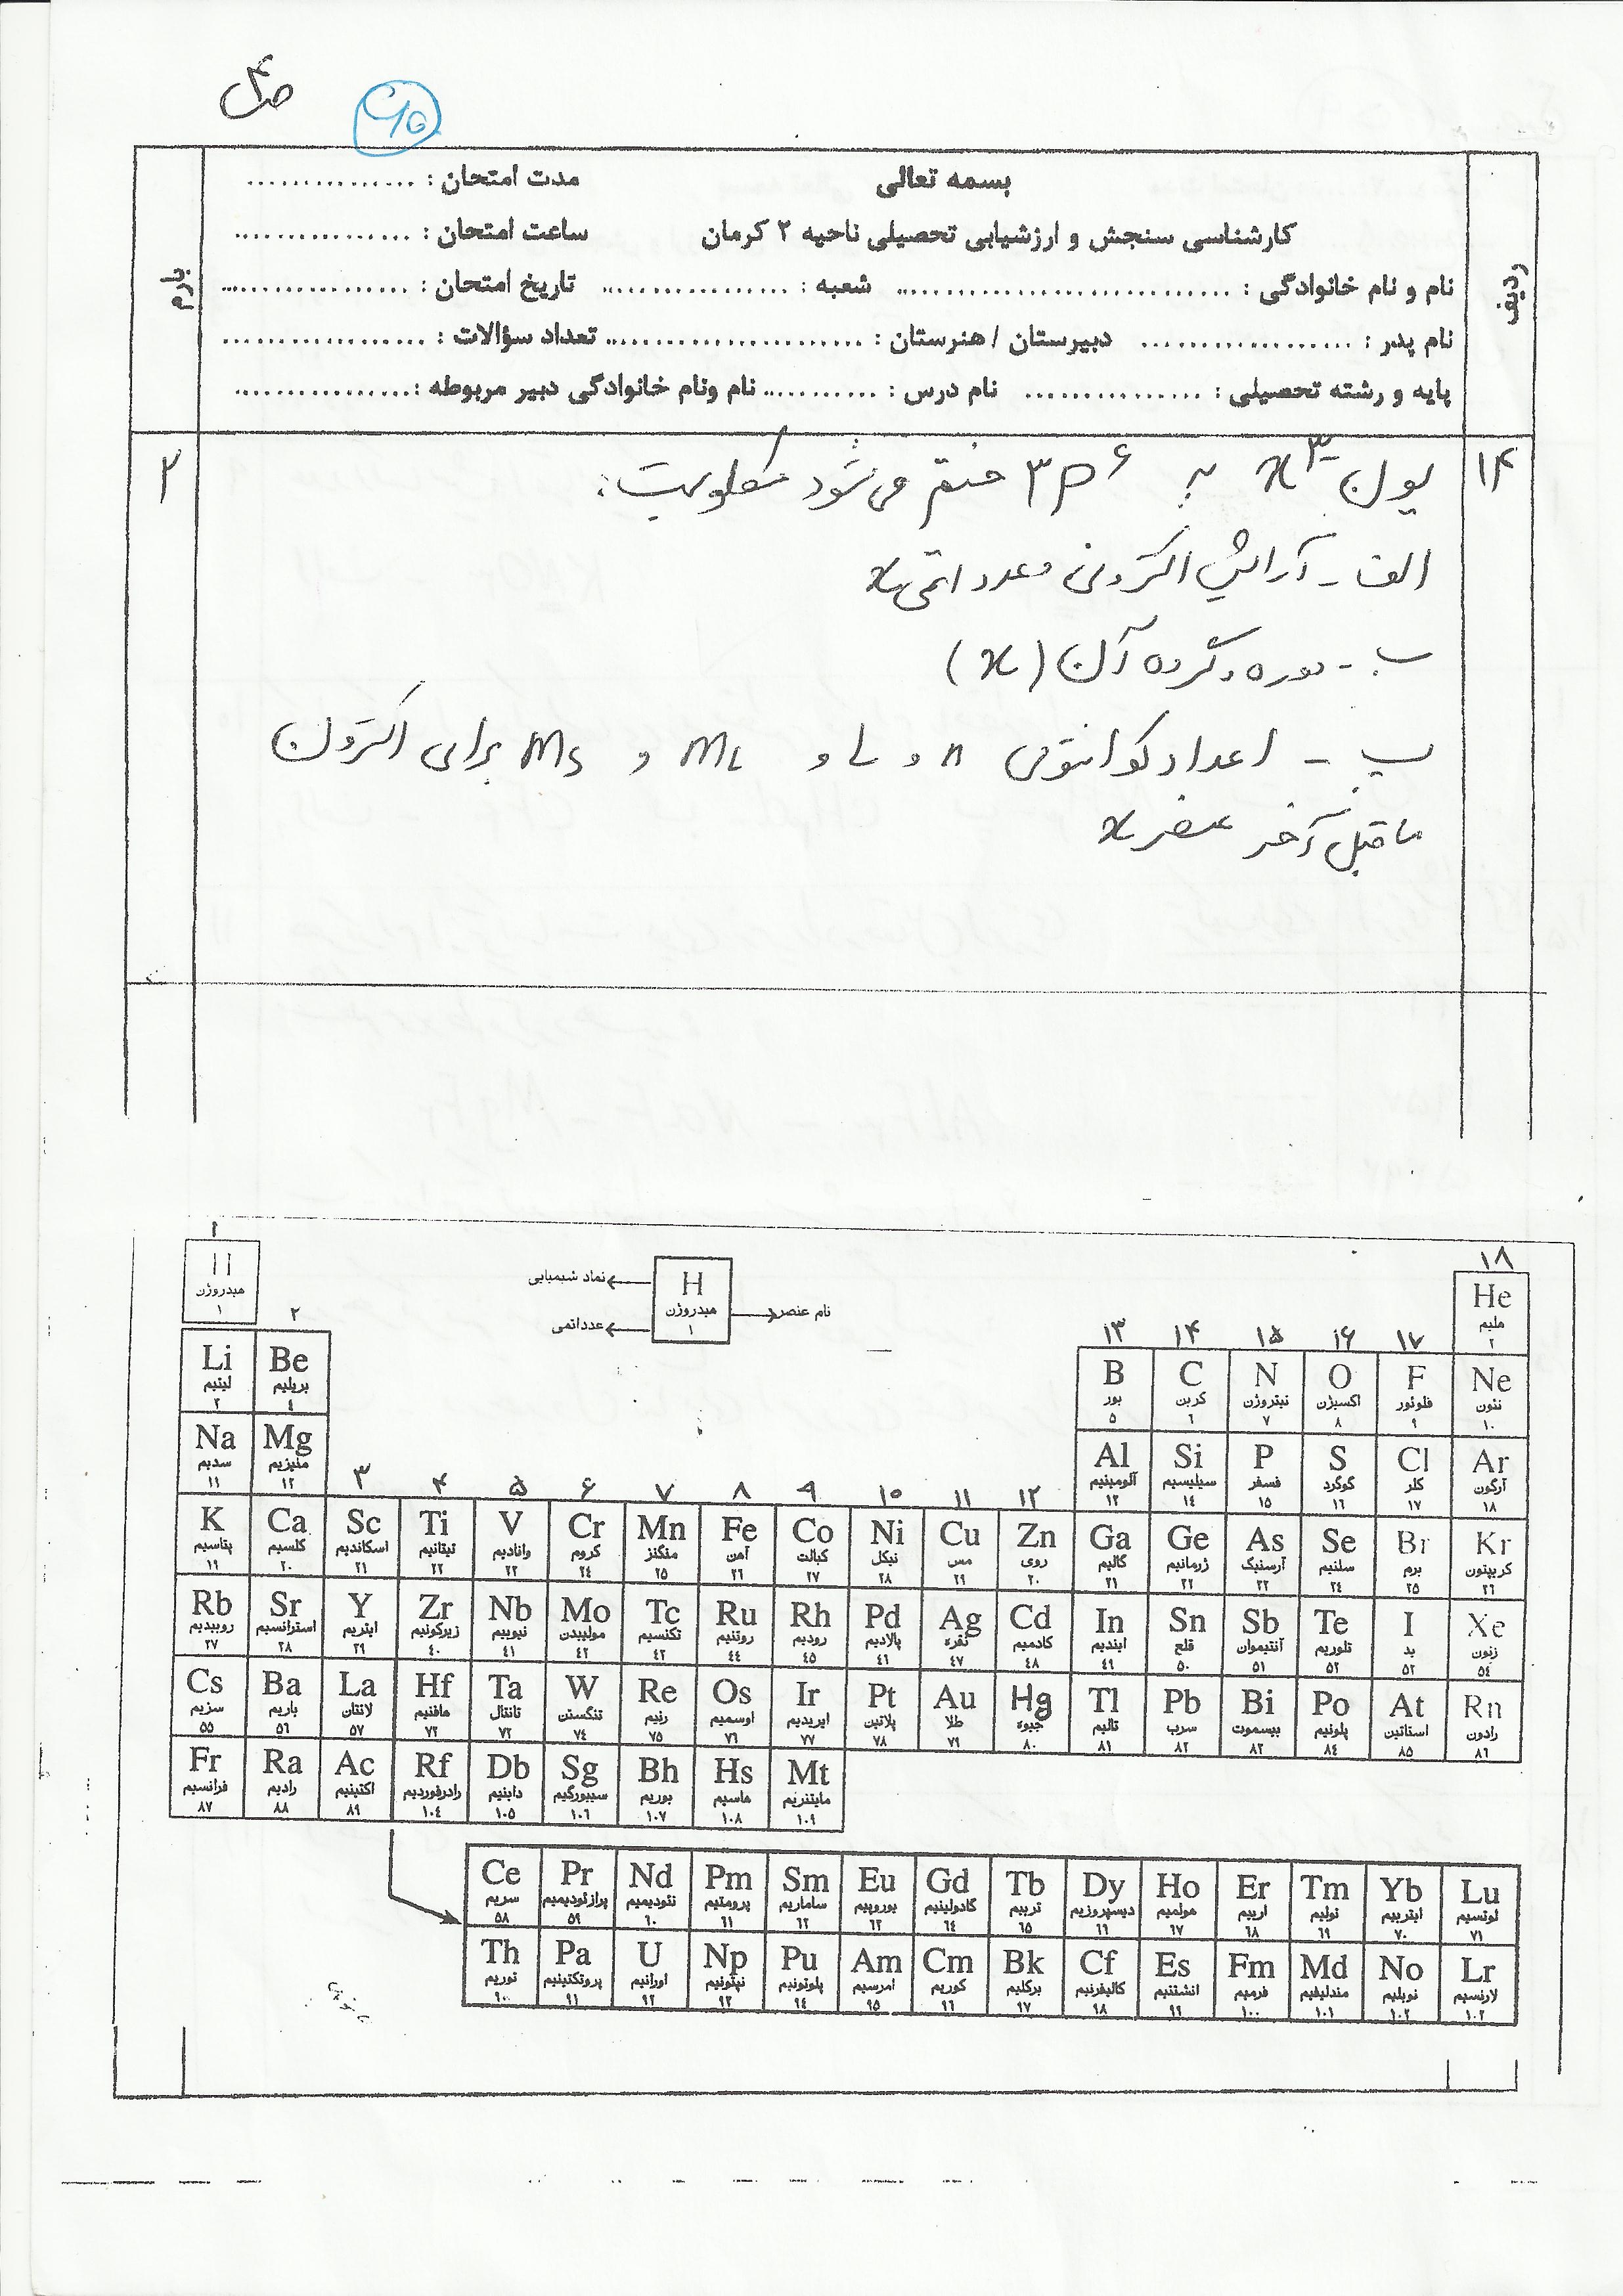 ص ۴
بسمه تعالی
مدت امتحان : ...............
کارشناسی سنجش و ارزشیابی تحصیلی ناحیه ۲ کرمان
ساعت امتحان : ................
ردیف
بارم
نام و نام خانوادگی : ............................... شعبه : ................ تاریخ امتحان : .................
نام پدر : ................... دبیرستان / هنرستان : ....................... تعداد سؤالات : ...................
پایه و رشته تحصیلی : ................ نام درس : ........... نام ونام خانوادگی دبیر مربوطه : ................
۱۴
یون x³⁻ به ۳p⁶ ختم می‌شود مطلوبست:
۲
الف - آرایش الکترونی و عدد اتمی x
ب - دوره و گروه آن (x)
پ - اعداد کوانتومی n و L و mL و ms برای الکترون
ماقبل آخر عنصر x
۱ ۱۸
H هیدروژن ۱
نماد شیمیایی
H هیدروژن ۱
نام عنصر
عدداتمی
He هلیم ۲
۲ ۱۳ ۱۴ ۱۵ ۱۶ ۱۷
Li Be B C N O F Ne
لیتیم بریلیم بور کربن نیتروژن اکسیژن فلوئور نئون
۳ ٤ ۵ ٦ ۷ ۸ ۹ ۱۰
Na Mg Al Si P S Cl Ar
سدیم منیزیم آلومینیم سیلیسیم فسفر گوگرد کلر آرگون
۱۱ ۱۲ ۱۳ ۱٤ ۱۵ ۱٦ ۱۷ ۱۸
۳ ۴ ۵ ۶ ۷ ۸ ۹ ۱۰ ۱۱ ۱۲
K Ca Sc Ti V Cr Mn Fe Co Ni Cu Zn Ga Ge As Se Br Kr
پتاسیم کلسیم اسکاندیم تیتانیم وانادیم کروم منگنز آهن کبالت نیکل مس روی گالیم ژرمانیم آرسنیک سلنیم برم کریپتون
۱۹ ۲۰ ۲۱ ۲۲ ۲۳ ۲٤ ۲۵ ۲٦ ۲۷ ۲۸ ۲۹ ۳۰ ۳۱ ۳۲ ۳۳ ۳٤ ۳۵ ۳٦
Rb Sr Y Zr Nb Mo Tc Ru Rh Pd Ag Cd In Sn Sb Te I Xe
روبیدیم استرانسیم ایتریم زیرکونیم نیوبیم مولیبدن تکنسیم روتنیم رودیم پالادیم نقره کادمیم ایندیم قلع آنتیموان تلوریم ید زنون
۳۷ ۳۸ ۳۹ ٤۰ ٤۱ ٤۲ ٤۳ ٤٤ ٤۵ ٤٦ ٤۷ ٤۸ ٤۹ ۵۰ ۵۱ ۵۲ ۵۳ ۵٤
Cs Ba La Hf Ta W Re Os Ir Pt Au Hg Tl Pb Bi Po At Rn
سزیم باریم لانتان هافنیم تانتال تنگستن رنیم اوسمیم ایریدیم پلاتین طلا جیوه تالیم سرب بیسموت پلونیم استاتین رادون
۵۵ ۵٦ ۵۷ ۷۲ ۷۳ ۷٤ ۷۵ ۷٦ ۷۷ ۷۸ ۷۹ ۸۰ ۸۱ ۸۲ ۸۳ ۸٤ ۸۵ ۸٦
Fr Ra Ac Rf Db Sg Bh Hs Mt
فرانسیم رادیم اکتینیم رادرفوردیم دابنیم سیبورگیم بوریم هاسیم مایتنریم
۸۷ ۸۸ ۸۹ ۱۰٤ ۱۰۵ ۱۰٦ ۱۰۷ ۱۰۸ ۱۰۹
Ce Pr Nd Pm Sm Eu Gd Tb Dy Ho Er Tm Yb Lu
سریم پرازئودیمیم نئودیمیم پرومتیم ساماریم یوروپیم گادولینیم تربیم دیسپروزیم هولمیم اربیم تولیم ایتربیم لوتسیم
۵۸ ۵۹ ٦۰ ٦۱ ٦۲ ٦۳ ٦٤ ٦۵ ٦٦ ٦۷ ٦۸ ٦۹ ۷۰ ۷۱
Th Pa U Np Pu Am Cm Bk Cf Es Fm Md No Lr
توریم پروتکتینیم اورانیم نپتونیم پلوتونیم امرسیم کوریم برکلیم کالیفرنیم انشتنیم فرمیم مندلیفیم نوبلیم لارنسیم
۹۰ ۹۱ ۹۲ ۹۳ ۹٤ ۹۵ ۹٦ ۹۷ ۹۸ ۹۹ ۱۰۰ ۱۰۱ ۱۰۲ ۱۰۳